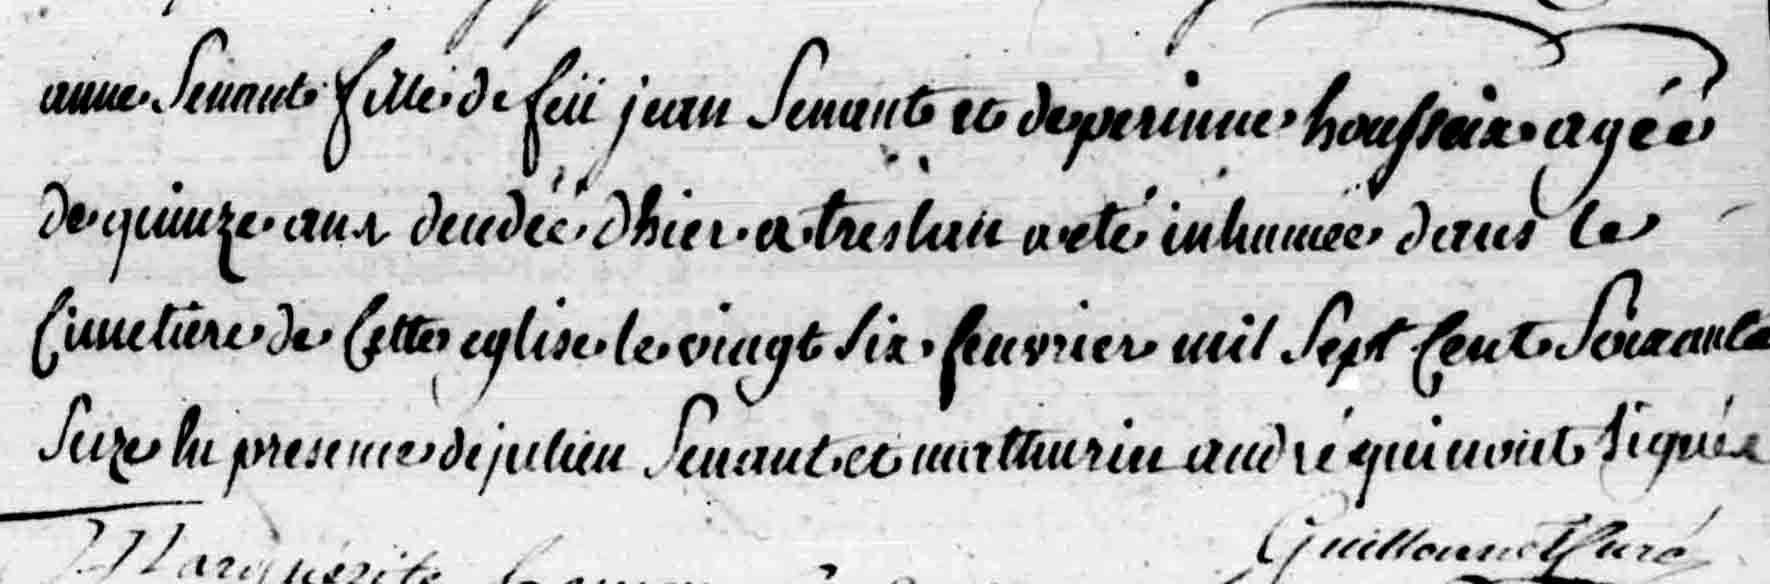 anne Senant fille de feü jean Senant et de perinne houssaix agéé
de quinze ans decédéé d'hier a treslan a eté inhumée dans le
Cimetiere de Cette eglise le vingt six feuvrier mil Sept Cent Soixante
Seize En presence de julien Senant et mathurin andré qui n'ont signés
Guillemot Curé
Marguérite